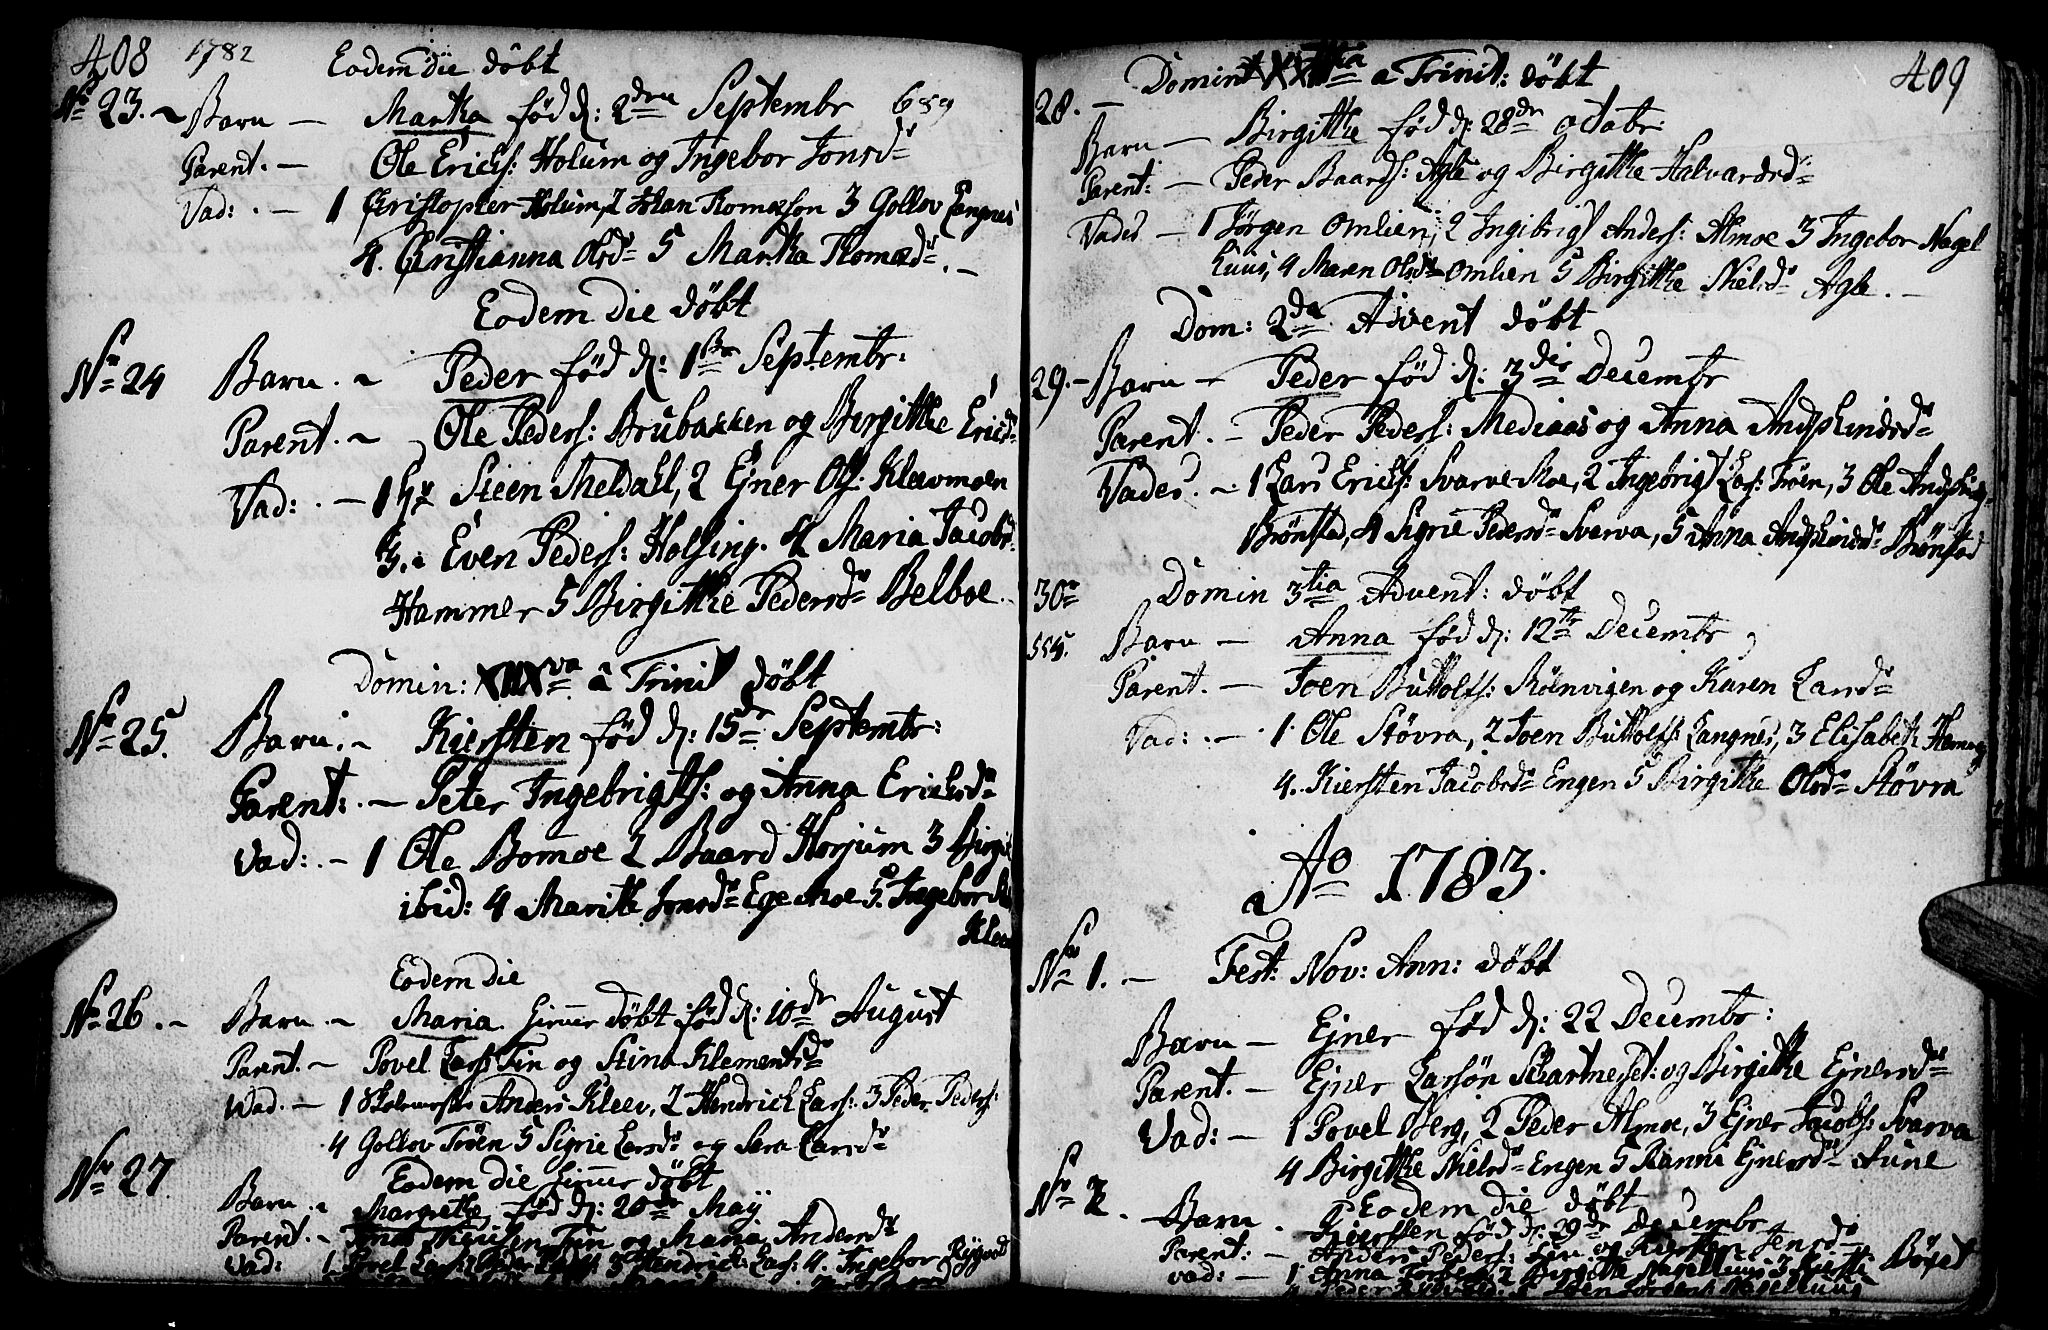 408 1782 Eodem die döbt
No 23. - Barn - Martha född d: 2den Septembr 659
Parent. - Ole Erichs: Holum og Ingebor Jonsd
Vad: . - 1 Christopher Holum, 2 Johan Thomæson 3 Gollov Langnes
4. Christianna Olsd 5 Martha Thomæd. -
Eodem die döbt
No 24 Barn. - Peder föd d: 1ste Septembr:
Parent. - Ole Peders: Brubakken og Birgithe Ericsd
Vad: . - 1 Hr Steen Meldahl, 2 Ejner Ols: Kleevmoen
3. Even Peders: Holsing. 4 Maria Jacobsd
Hammer 5 Birgithe Pedersd Belboe.
Domin: va a Trinit döbt
No 25. Barn. - Kiersten föd d: 15de Septembr:
Parent: . - Peter Ingebrigts: og Anna Ericksd
Vad: . - 1 Ole Bomoe 2 Baard Horjum 3 Birgit
ibid: 4 Marithe Jonsd Ege Moe 5. Ingebor
Klee
Eodem die
No 26. - Barn. - Maria hiemmedöbt föd d: 10de August
Parent. - Povel Lars: Tin og Stina Klementsd
Vad. - 1 Skolemester Anders Kleev, 2 Hendrick Lars: 3 Peder Peders:
4 Gollov Tröen 5 Sigrie Larsd og Sara Larsd
No 27 Eodem die hiemmedöbt
Barn. - Margrethe föd d: 20de Maij
Parent. - Tin og Maria Andersd
Vad: 1 Povel Lars: 3 Hendrick Lars: 4. Ingebor Rygard
409
Domin a Trinit: döbt
28. - Barn - Birgithe föd d: 28de octobr:
Parent: - Peder Baards: Agle og Birgithe Halvardsd
Vades - 1 Jörgen Omlien, 2 Ingibrigt Anders: Almoe 3 Ingebor Nagel
huus, 4 Maren Olsd Omlien 5 Birgithe Nielsd Agle. -
Dom: 2da Advent döbt
29. - Barn - Peder föd d: 3die Decembr
Parent. - Peder Peders: Mediaas og Anna Andphindsd
Vades. - 1 Lars Erichs: Svarve Moe, 2 Ingebrigt Lars: Tröen, 3 Ole Andphinds:
Brönstad, 4 Sigrie Pedersd Svarva, 5 Anna Andphindsd Brönstad
30te Domin 3tia Advent: döbt
554. Barn - Anna föd d: 12te Decembr
Parent. - Joen Buttolfs: Rönvigen og Karen Larsd
Vad: . - 1. Ole Stövra, 2 Joen Buttolfs: Langnes, 3 Elisabet:
4. Kiersten Jacobsd Engen 5 Birgithe Olsd Stövra
Ao 1783.
No 1. - Fest: Nov: Ann: döbt
Barn - Ejner föd d: 22 Decembr:
Parent. - Ejner Larsön og Birgithe Ejnersd
Vad: - 1 Povel Berg, 2 Peder Almoe, 3 Ejner Jacobs: Svarva
4 Birgithe Nielsd Engen 5 Ejnersd Aune
No 2. Eodem die döbt
Barn. Kiersten föd d: 29de Decembr
Parent: - Anders Peders: og Kiersten Jensd
Vad: - 1 Anna 2 Birgithe Nagelhuus 3 Böjet